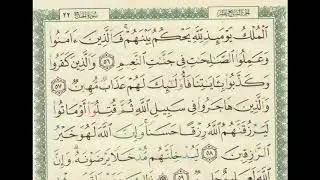 سُورَةُ الحَجِّ ٢٢
ٱلْمُلْكُ يَوْمَئِذٍ لِّلَّهِ يَحْكُمُ بَيْنَهُمْ ۚ فَٱلَّذِينَ ءَامَنُوا۟
وَعَمِلُوا۟ ٱلصَّٰلِحَٰتِ فِى جَنَّٰتِ ٱلنَّعِيمِ ٥٦ وَٱلَّذِينَ كَفَرُوا۟
وَكَذَّبُوا۟ بِـَٔايَٰتِنَا فَأُو۟لَٰٓئِكَ لَهُمْ عَذَابٌ مُّهِينٌ ٥٧
وَٱلَّذِينَ هَاجَرُوا۟ فِى سَبِيلِ ٱللَّهِ ثُمَّ قُتِلُوٓا۟ أَوْ مَاتُوا۟
لَيَرْزُقَنَّهُمُ ٱللَّهُ رِزْقًا حَسَنًا ۚ وَإِنَّ ٱللَّهَ لَهُوَ خَيْرُ
ٱلرَّٰزِقِينَ ٥٨ لَيُدْخِلَنَّهُم مُّدْخَلًا يَرْضَوْنَهُۥ ۗ وَإِنَّ